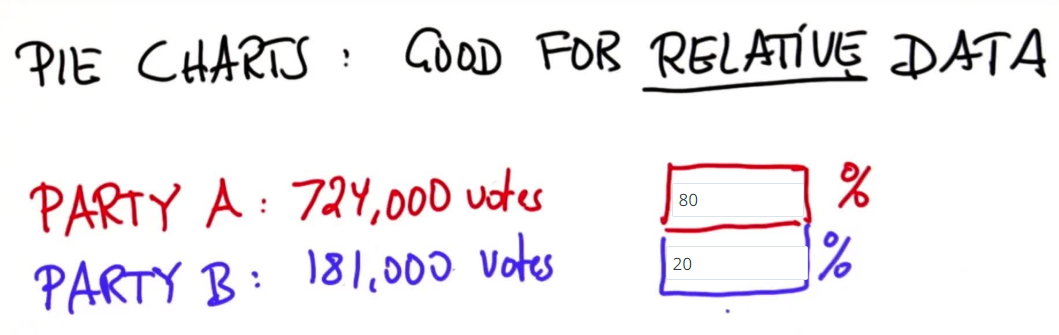 PIE CHARTS : GOOD FOR RELATIVE DATA
PARTY A : 724,000 votes 80 %
PARTY B : 181,000 votes 20 %